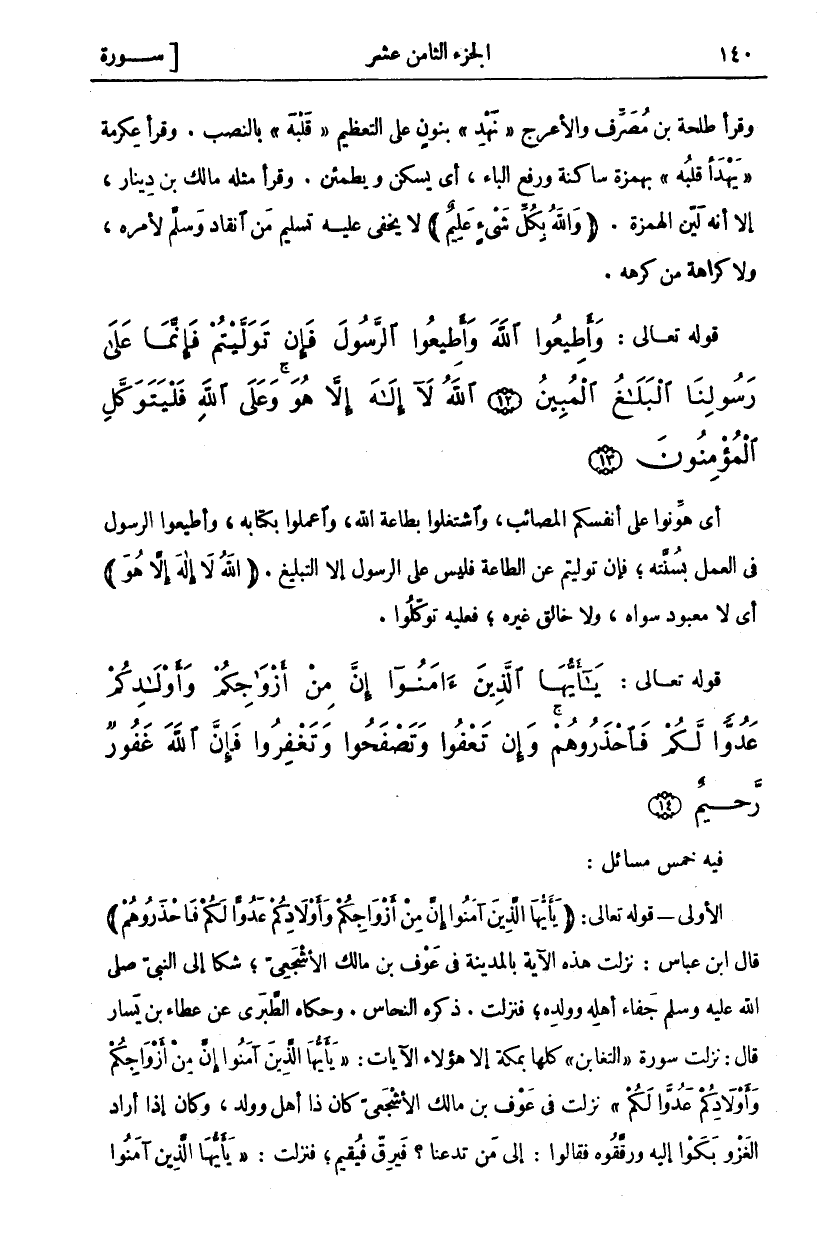 ١٤٠ الجزء الثامن عشر [ ســورة
وقرأ طلحة بن مُصَرِّف والأعرج « نَهْدِ » بنونٍ على التعظيم « قَلْبَه » بالنصب . وقرأ عكرمة
« يَهْدَأ قلبُه » بهمزة ساكنة ورفع الباء ، أى يسكن ويطمئن . وقرأ مثله مالك بن دِينار ،
إلا أنه ليّن الهمزة . ﴿ وَاللهُ بِكُلِّ شَىْءٍ عَلِيمٌ ﴾ لا يخفى عليــه تسليم مَن آنقاد وَسلّم لأمره ،
ولا كراهة من كرهه .
قوله تعــالى : وَأَطِيعُوا ٱللَّهَ وَأَطِيعُوا ٱلرَّسُولَ فَإِن تَوَلَّيْتُمْ فَإِنَّمَا عَلَىٰ
رَسُولِنَا ٱلْبَلَـٰغُ ٱلْمُبِينُ ﴿١٢﴾ ٱللَّهُ لَآ إِلَـٰهَ إِلَّا هُوَ ۚ وَعَلَى ٱللَّهِ فَلْيَتَوَكَّلِ
ٱلْمُؤْمِنُونَ ﴿١٣﴾
أى هوِّنوا على أنفسكم المصائب، وٱشتغلوا بطاعة الله، وٱعملوا بكتابه ، وأطيعوا الرسول
فى العمل بسُنَّته ؛ فإن توليتم عن الطاعة فليس على الرسول إلا التبليغ . ﴿ اللهُ لَا إِلٰهَ إِلَّا هُوَ ﴾
أى لا معبود سواه ، ولا خالق غيره ؛ فعليه توكّلُوا .
قوله تعــالى : يَـٰٓأَيُّهَا ٱلَّذِينَ ءَامَنُوٓا إِنَّ مِنْ أَزْوَٰجِكُمْ وَأَوْلَـٰدِكُمْ
عَدُوًّا لَّكُمْ فَٱحْذَرُوهُمْ ۚ وَإِن تَعْفُوا وَتَصْفَحُوا وَتَغْفِرُوا فَإِنَّ ٱللَّهَ غَفُورٌ
رَّحِــيمٌ ﴿١٤﴾
فيه خمس مسائل :
الأولى — قوله تعالى: ﴿ يَأَيُّهَا الَّذِينَ آمَنُوا إِنَّ مِنْ أَزْوَاجِكُمْ وَأَوْلَادِكُمْ عَدُوًّا لَكُمْ فَاحْذَرُوهُمْ ﴾
قال ابن عباس : نزلت هذه الآية بالمدينة فى عَوْف بن مالك الأشْجَعِىّ ؛ شكا إلى النبىّ صلى
الله عليه وسلم جَفاء أهلِه وولدِه؛ فنزلت . ذكره النحاس . وحكاه الطَّبَرى عن عطاء بن يَسار
قال : نزلت سورة «التغابن» كلها بمكة إلا هؤلاء الآيات: « يَأَيُّهَا الَّذِينَ آمَنُوا إِنَّ مِنْ أَزْوَاجِكُمْ
وَأَوْلَادِكُمْ عَدُوًّا لَكُمْ » نزلت فى عَوْف بن مالك الأشْجَعِىّ كان ذا أهل وولد ، وكان إذا أراد
الغَزْو بَكَوْا إليه ورقَّقُوه فقالوا : إلى مَن تدعنا ؟ فَيرِقّ فيُقيم؛ فنزلت : « يَأَيُّهَا الَّذِين آمَنُوا